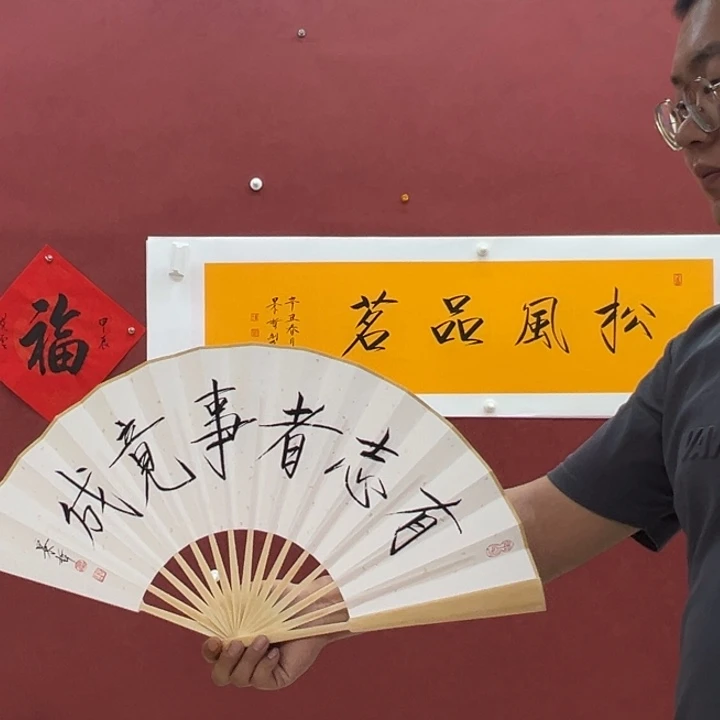 有志者事竟成
松風品茗
辛丑春月
福
甲辰